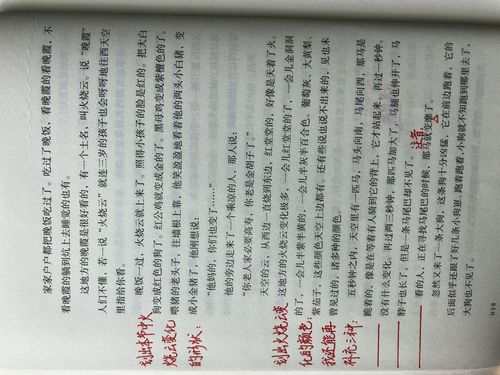 家家户户都把晚饭吃过了。吃过了晚饭，看晚霞的看晚霞，不
看晚霞的躺到炕上去睡觉的也有。
这地方的晚霞是很好看的，有一个土名，叫火烧云。说“晚霞”
人们不懂，若一说“火烧云”就连三岁的孩子也会呀呀地往西天空
里指给你看。
晚饭一过，火烧云就上来了。照得小孩子的脸是红的。把大白
狗变成红色的狗了。红公鸡就变成金的了。黑母鸡变成紫檀色的了。
喂猪的老头子，往墙根上靠，他笑盈盈地看着他的两头小白猪，变
成小金猪了，他刚想说：
“他妈的，你们也变了……”
他的旁边走来了一个乘凉的人，那人说：
“你老人家必要高寿，你老是金胡子了。”
天空的云，从西边一直烧到东边，红堂堂的，好像是天着了火。
这地方的火烧云变化极多，一会儿红堂堂的了，一会儿金洞洞
的了，一会儿半紫半黄的，一会儿半灰半百合色。葡萄灰、大黄梨、
紫茄子，这些颜色天空上边都有。还有些说也说不出来的，见也未
曾见过的，诸多种的颜色。
五秒钟之内，天空里有一匹马，马头向南，马尾向西，那马是
跪着的，像是在等着有人骑到它的背上，它才站起来。再过一秒钟。
没有什么变化。再过两三秒钟，那匹马加大了，马腿也伸开了，马
脖子也长了，但是一条马尾巴却不见了。
看的人，正在寻找马尾巴的时候，那马就变靡了。
忽然又来了一条大狗，这条狗十分凶猛，它在前边跑着，它的
后面似乎还跟了好几条小狗崽。跑着跑着，小狗就不知跑到哪里去了，
大狗也不见了。
028
划出本节中火
烧云变化
的形状、
划出火烧云变
化的颜色：
我还能再
补充三种：
注音